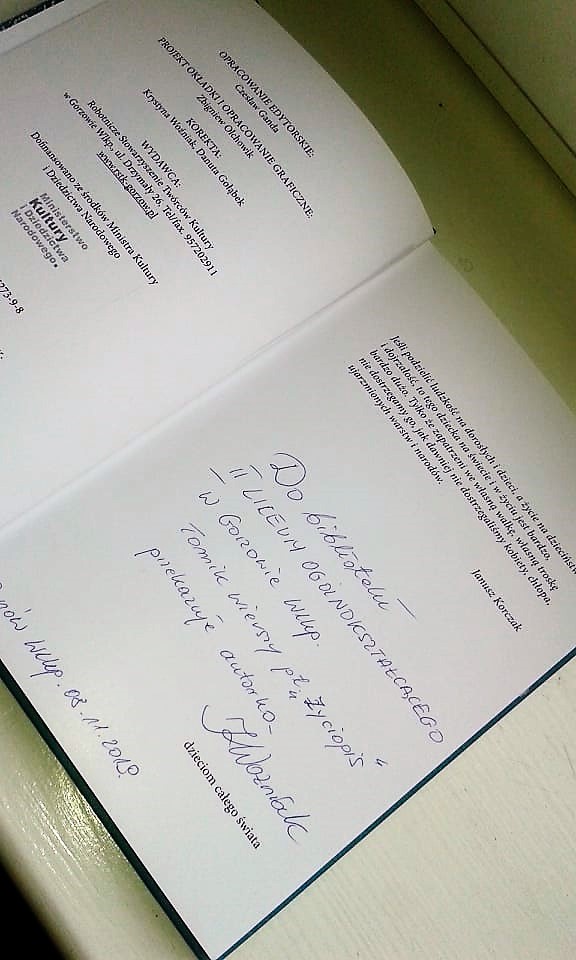 OPRACOWANIE EDYTORSKIE:
Czesław Ganda
PROJEKT OKŁADKI I OPRACOWANIE GRAFICZNE:
Zbigniew Olchowik
KOREKTA:
Krystyna Woźniak, Danuta Gołębek
WYDAWCA:
Robotnicze Stowarzyszenie Twórców Kultury
w Gorzowie Wlkp., ul. Drzymały 26, Tel/fax. 957202911
www.rstk-gorzow.pl
Dofinansowano ze środków Ministra Kultury
i Dziedzictwa Narodowego
Ministerstwo
Kultury
i Dziedzictwa
Narodowego.
273-9-8
Jeśli podzielić ludzkość na dorosłych i dzieci, a życie na dzieciństwo
i dojrzałość, to tego dziecka na świecie i w życiu jest bardzo,
bardzo dużo. Tylko że zapatrzeni we własną walkę, własną troskę
nie dostrzegamy go, jak dawniej nie dostrzegaliśmy kobiety, chłopa,
ujarzmionych warstw i narodów.
Janusz Korczak
Do biblioteki –
– II LICEUM OGÓLNOKSZTAŁCĄCEGO
– W GORZOWIE Wlkp.
Tomik wierszy pt. "Życiopis"
przekazuje autorka –
KWoźniak
dzieciom całego świata
Wlkp. 08.11.2019